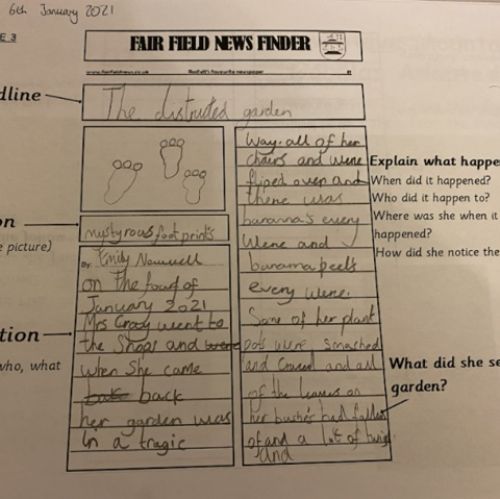 6th January 2021
E 3
FAIR FIELD NEWS FINDER
www.fairfieldnews.co.uk
favourite newspaper
£1
dline
The distruted garden
on
e picture)
mystyrous foot prints
By: Emily
on The fourf of
January 2021
tion
Mrs Crazy went to
the Shops and were
who, what
when She came
back
her garden was
in a tragic
Way. all of her
chairs and were
fliped over and
there was
bananna's every
Were and
banana peels
every were.
Some of her plant
pots were smached
and and all
of the leaves on
her bushes had fallen
of and a lot of
and
Explain what happe
When did it happened?
Who did it happen to?
Where was she when it
happened?
How did she notice the
What did she se
garden?